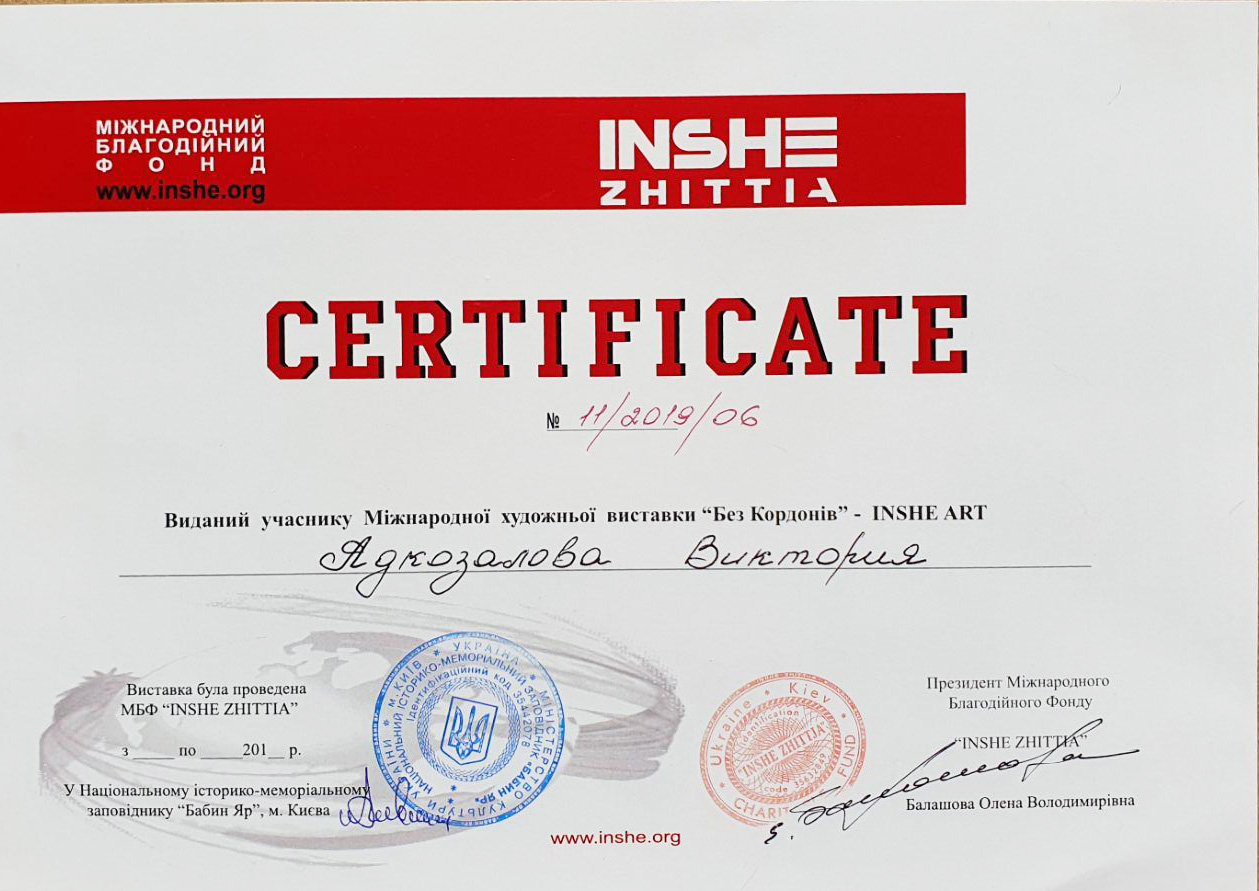 МІЖНАРОДНИЙ
БЛАГОДІЙНИЙ
ФОНД
www.inshe.org
INSHE
ZHITTIA
CERTIFICATE
№ 11/2019/06
Виданий учаснику Міжнародної художньої виставки “Без Кордонів” - INSHE ART
Ядкозалова Виктория
Виставка була проведена
МБФ “INSHE ZHITTIA”
з _____ по _____201__ р.
У Національному історико-меморіальному
заповіднику “Бабин Яр”, м. Києва
УКРАЇНА * МІНІСТЕРСТВО КУЛЬТУРИ УКРАЇНИ * м. КИЇВ *
НАЦІОНАЛЬНИЙ ІСТОРИКО-МЕМОРІАЛЬНИЙ ЗАПОВІДНИК «БАБИН ЯР» *
Ідентифікаційний код 35442078
Ukraine * Kiev *
CHARIT FUND
identification
"INSHE ZHITTIA"
code
Президент Міжнародного
Благодійного Фонду
“INSHE ZHITTIA”
Балашова Олена Володимирівна
www.inshe.org